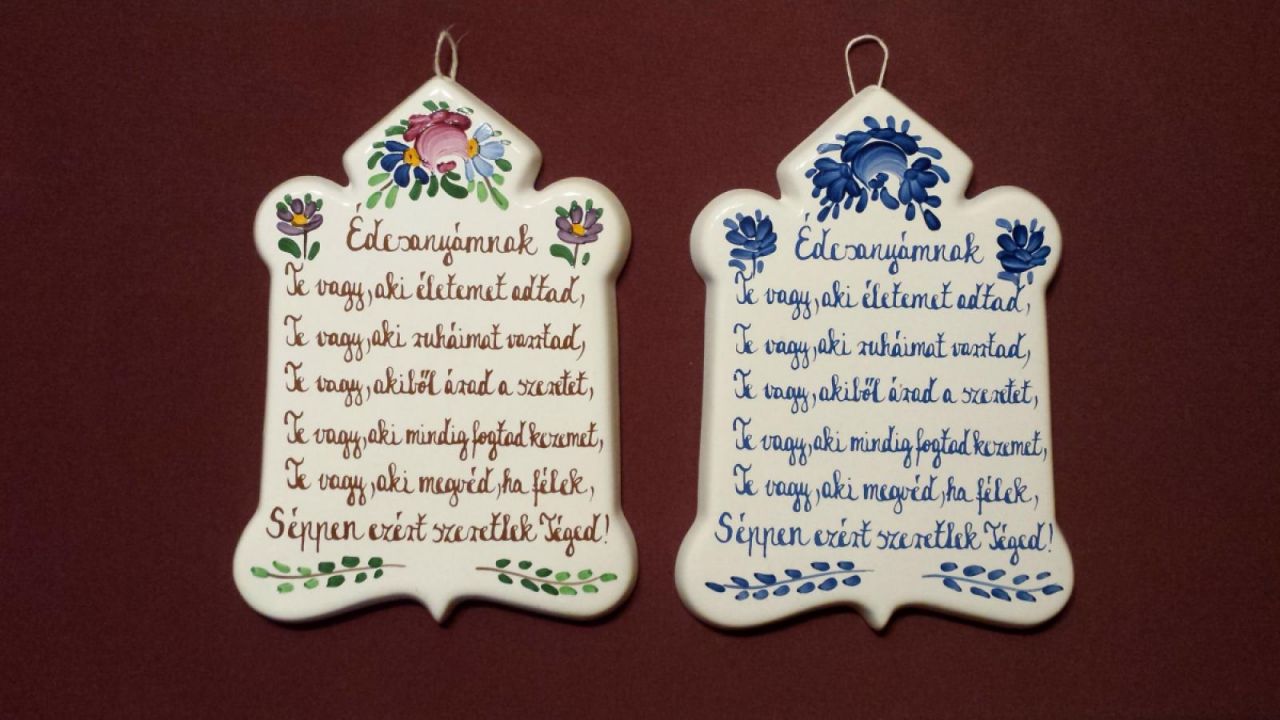 Édesanyámnak
Te vagy, aki életemet adtad,
Te vagy, aki ruháimat varrtad,
Te vagy, akiből árad a szeretet,
Te vagy, aki mindig fogtad kezemet,
Te vagy, aki megvéd, ha félek,
Séppen ezért szeretlek Téged!
Édesanyámnak
Te vagy, aki életemet adtad,
Te vagy, aki ruháimat varrtad,
Te vagy, akiből árad a szeretet,
Te vagy, aki mindig fogtad kezemet,
Te vagy, aki megvéd, ha félek,
Séppen ezért szeretlek Téged!